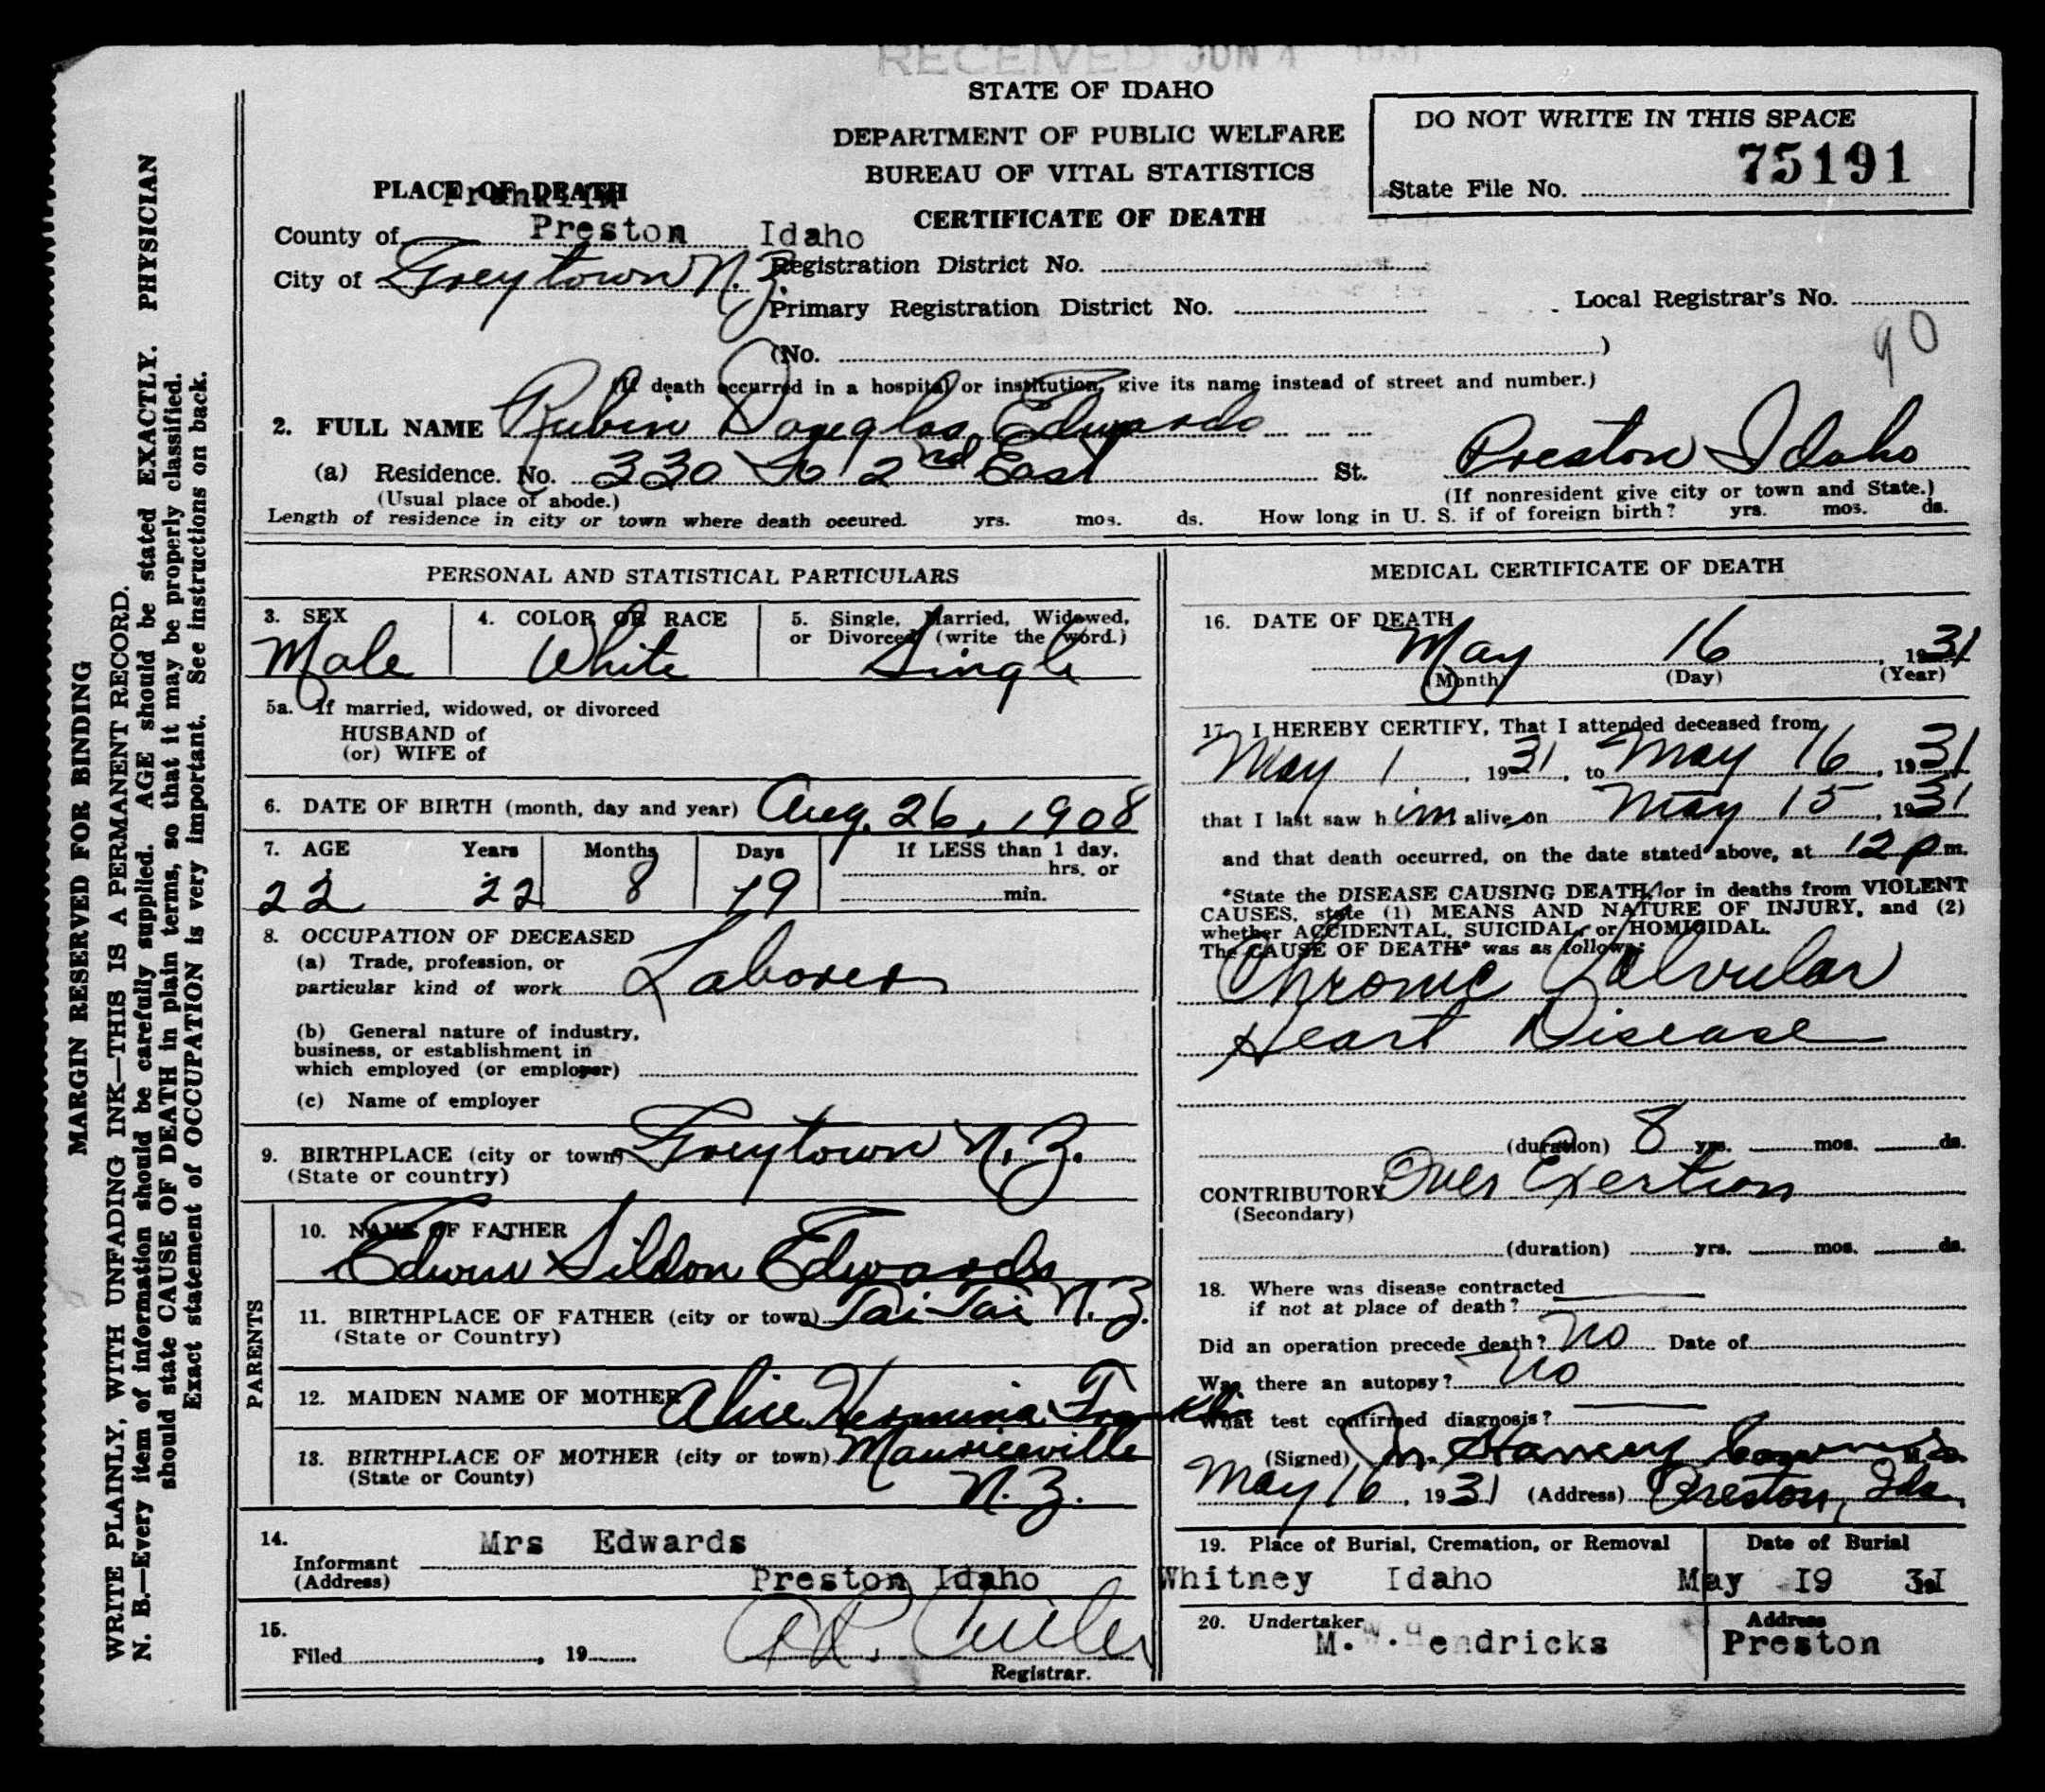 RECEIVED JUN 4 1931
STATE OF IDAHO
DEPARTMENT OF PUBLIC WELFARE
BUREAU OF VITAL STATISTICS
CERTIFICATE OF DEATH
DO NOT WRITE IN THIS SPACE
75191
State File No.
PLACE OF DEATH
Franklin
County of Preston Idaho
City of Greytown N. Z.
Registration District No.
Primary Registration District No.
Local Registrar's No.
90
(No. )
(If death occurred in a hospital or institution, give its name instead of street and number.)
2. FULL NAME Rubin Douglas Edwards
(a) Residence. No. 330 So 2nd East St. Preston Idaho
(Usual place of abode.) (If nonresident give city or town and State.)
Length of residence in city or town where death occured. yrs. mos. ds. How long in U. S. if of foreign birth? yrs. mos. ds.
PERSONAL AND STATISTICAL PARTICULARS
3. SEX 4. COLOR OR RACE 5. Single, Married, Widowed,
or Divorced (write the word.)
Male White Single
5a. If married, widowed, or divorced
HUSBAND of
(or) WIFE of
6. DATE OF BIRTH (month, day and year) Aug. 26, 1908
7. AGE Years Months Days If LESS than 1 day,
hrs. or
22 22 8 19 min.
8. OCCUPATION OF DECEASED
(a) Trade, profession, or
particular kind of work Laborer
(b) General nature of industry,
business, or establishment in
which employed (or employer)
(c) Name of employer
9. BIRTHPLACE (city or town) Greytown N. Z.
(State or country)
PARENTS
10. NAME OF FATHER
Edwin Edwards
11. BIRTHPLACE OF FATHER (city or town) Tai Tai N. Z.
(State or Country)
12. MAIDEN NAME OF MOTHER Alice Hermina
13. BIRTHPLACE OF MOTHER (city or town) Mauriceville
(State or County) N. Z.
14.
Informant Mrs Edwards
(Address) Preston Idaho
15.
Filed , 19
Registrar.
MEDICAL CERTIFICATE OF DEATH
16. DATE OF DEATH
May 16 , 1931
(Month) (Day) (Year)
17. I HEREBY CERTIFY, That I attended deceased from
May 1 , 1931, to May 16, 1931
that I last saw him alive on May 15, 1931
and that death occurred, on the date stated above, at 12 p m.
*State the DISEASE CAUSING DEATH, or in deaths from VIOLENT
CAUSES, state (1) MEANS AND NATURE OF INJURY, and (2)
whether ACCIDENTAL, SUICIDAL, or HOMICIDAL.
The CAUSE OF DEATH* was as follows:
Chronic Valvular
Heart Disease
(duration) 8 yrs. mos. ds.
CONTRIBUTORY Over Exertion
(Secondary)
(duration) yrs. mos. ds.
18. Where was disease contracted
if not at place of death?
Did an operation precede death? No Date of
Was there an autopsy? No
What test confirmed diagnosis?
(Signed)
May 16, 1931 (Address) Preston, Ida.
19. Place of Burial, Cremation, or Removal Date of Burial
Whitney Idaho May I9 3I
20. Undertaker Address
M. W. Hendricks Preston
MARGIN RESERVED FOR BINDING
WRITE PLAINLY, WITH UNFADING INK—THIS IS A PERMANENT RECORD.
N. B.—Every item of information should be carefully supplied. AGE should be stated EXACTLY. PHYSICIAN
should state CAUSE OF DEATH in plain terms, so that it may be properly classified.
Exact statement of OCCUPATION is very important. See instructions on back.